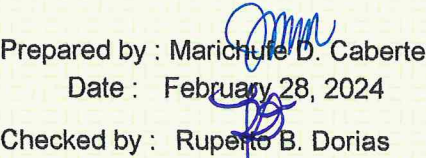 Prepared by : Marichufe D. Caberte
Date : February 28, 2024
Checked by : Ruperto B. Dorias